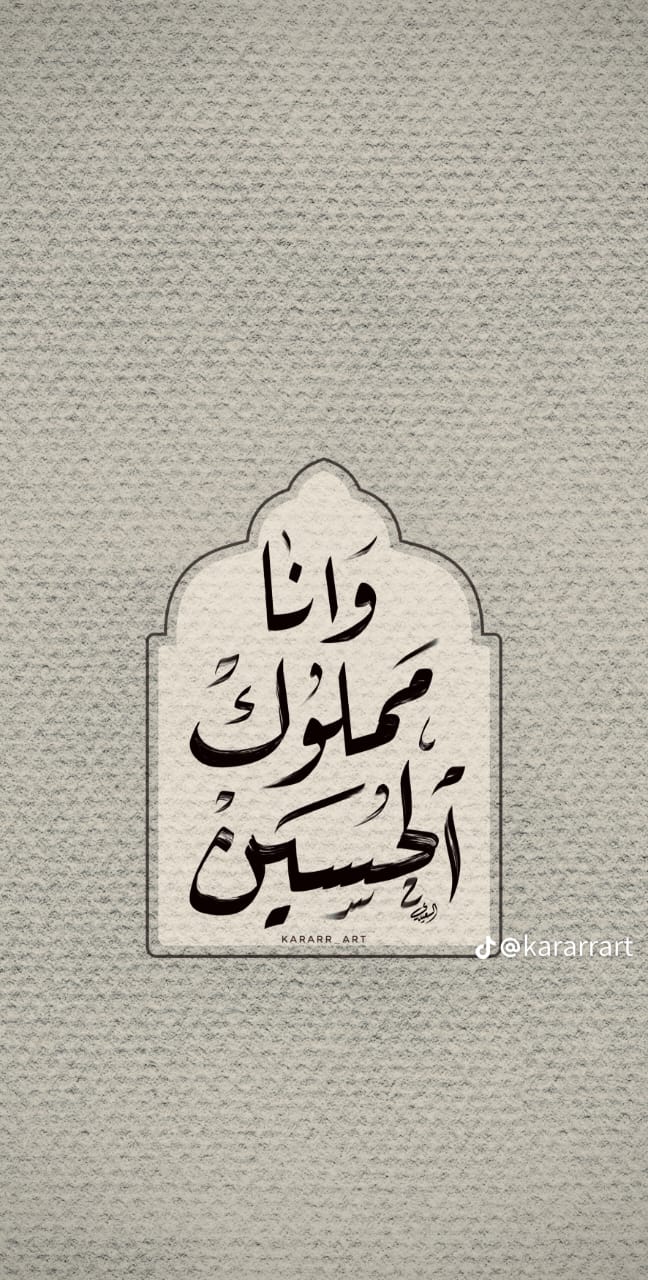 وَانا
مَملوُك
ٱلحُسين
KARARR_ART
@kararrart